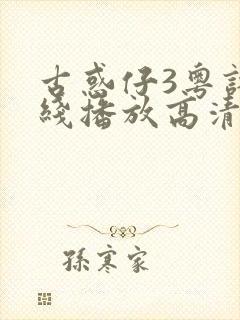 古惑仔3粤
綫播放高清
孫寒家